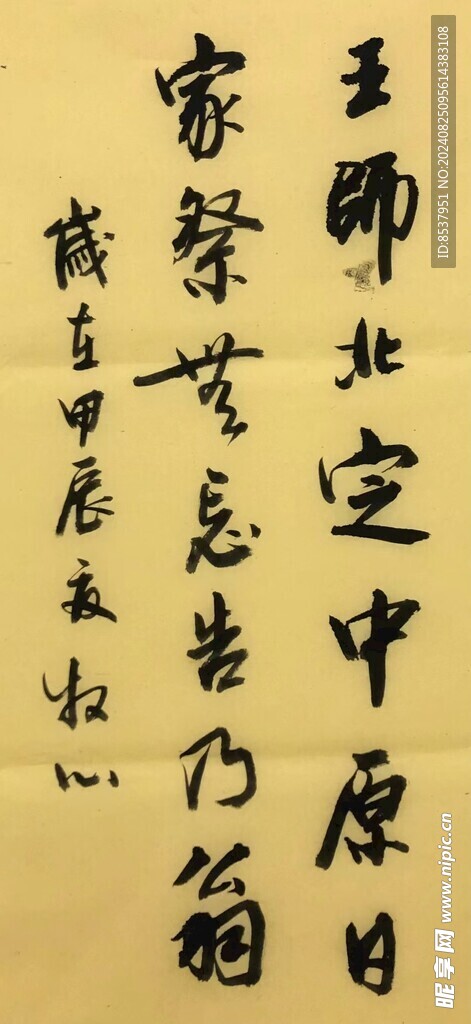 王師北定中原日
家祭無忘告乃翁
歲在甲辰夏牧心
ID:8537951 NO:20240825095614383108
昵享网 www.nipic.cn